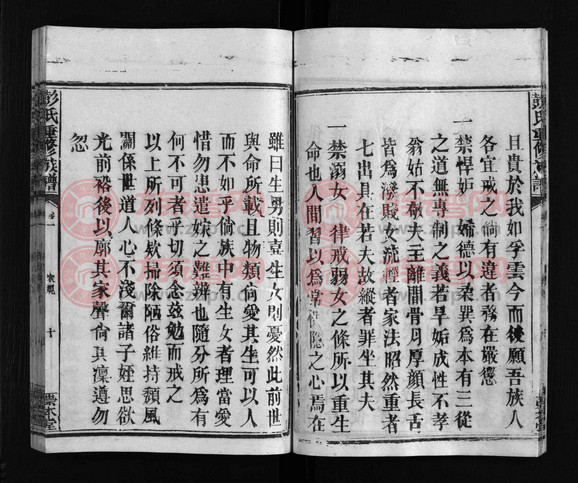 彭氏重修族譜
且貴於我如浮雲今而後願吾族人
各宜戒之倘有違者務在嚴懲
一禁悍妒 婦德以柔巽爲本有三從
之道無專制之義若旱妬成性不孝
翁姑不敬夫主離間骨肉厚顔長舌
皆爲潑賤女流輕者家法昭然重者
七出具在若夫故縱者罪坐其夫
一禁溺女 律戒弱女之條所以重生
命也人間習以爲常惻隱之心焉在
雖曰生男則喜生女則憂然此前世
與命所載且物類倘愛其生可以人
而不如乎倫族中有生女者理當愛
惜勿患遣嫁之難辨也隨分所爲有
何不可者乎切須念兹勉而戒之
以上所列條欵掃除陋俗維持頹風
關係世道人心不淺爾諸子姪思欲
光前裕後以廓其家聲倘其凜遵勿
忽
彭氏重修族譜
卷一
家規
十